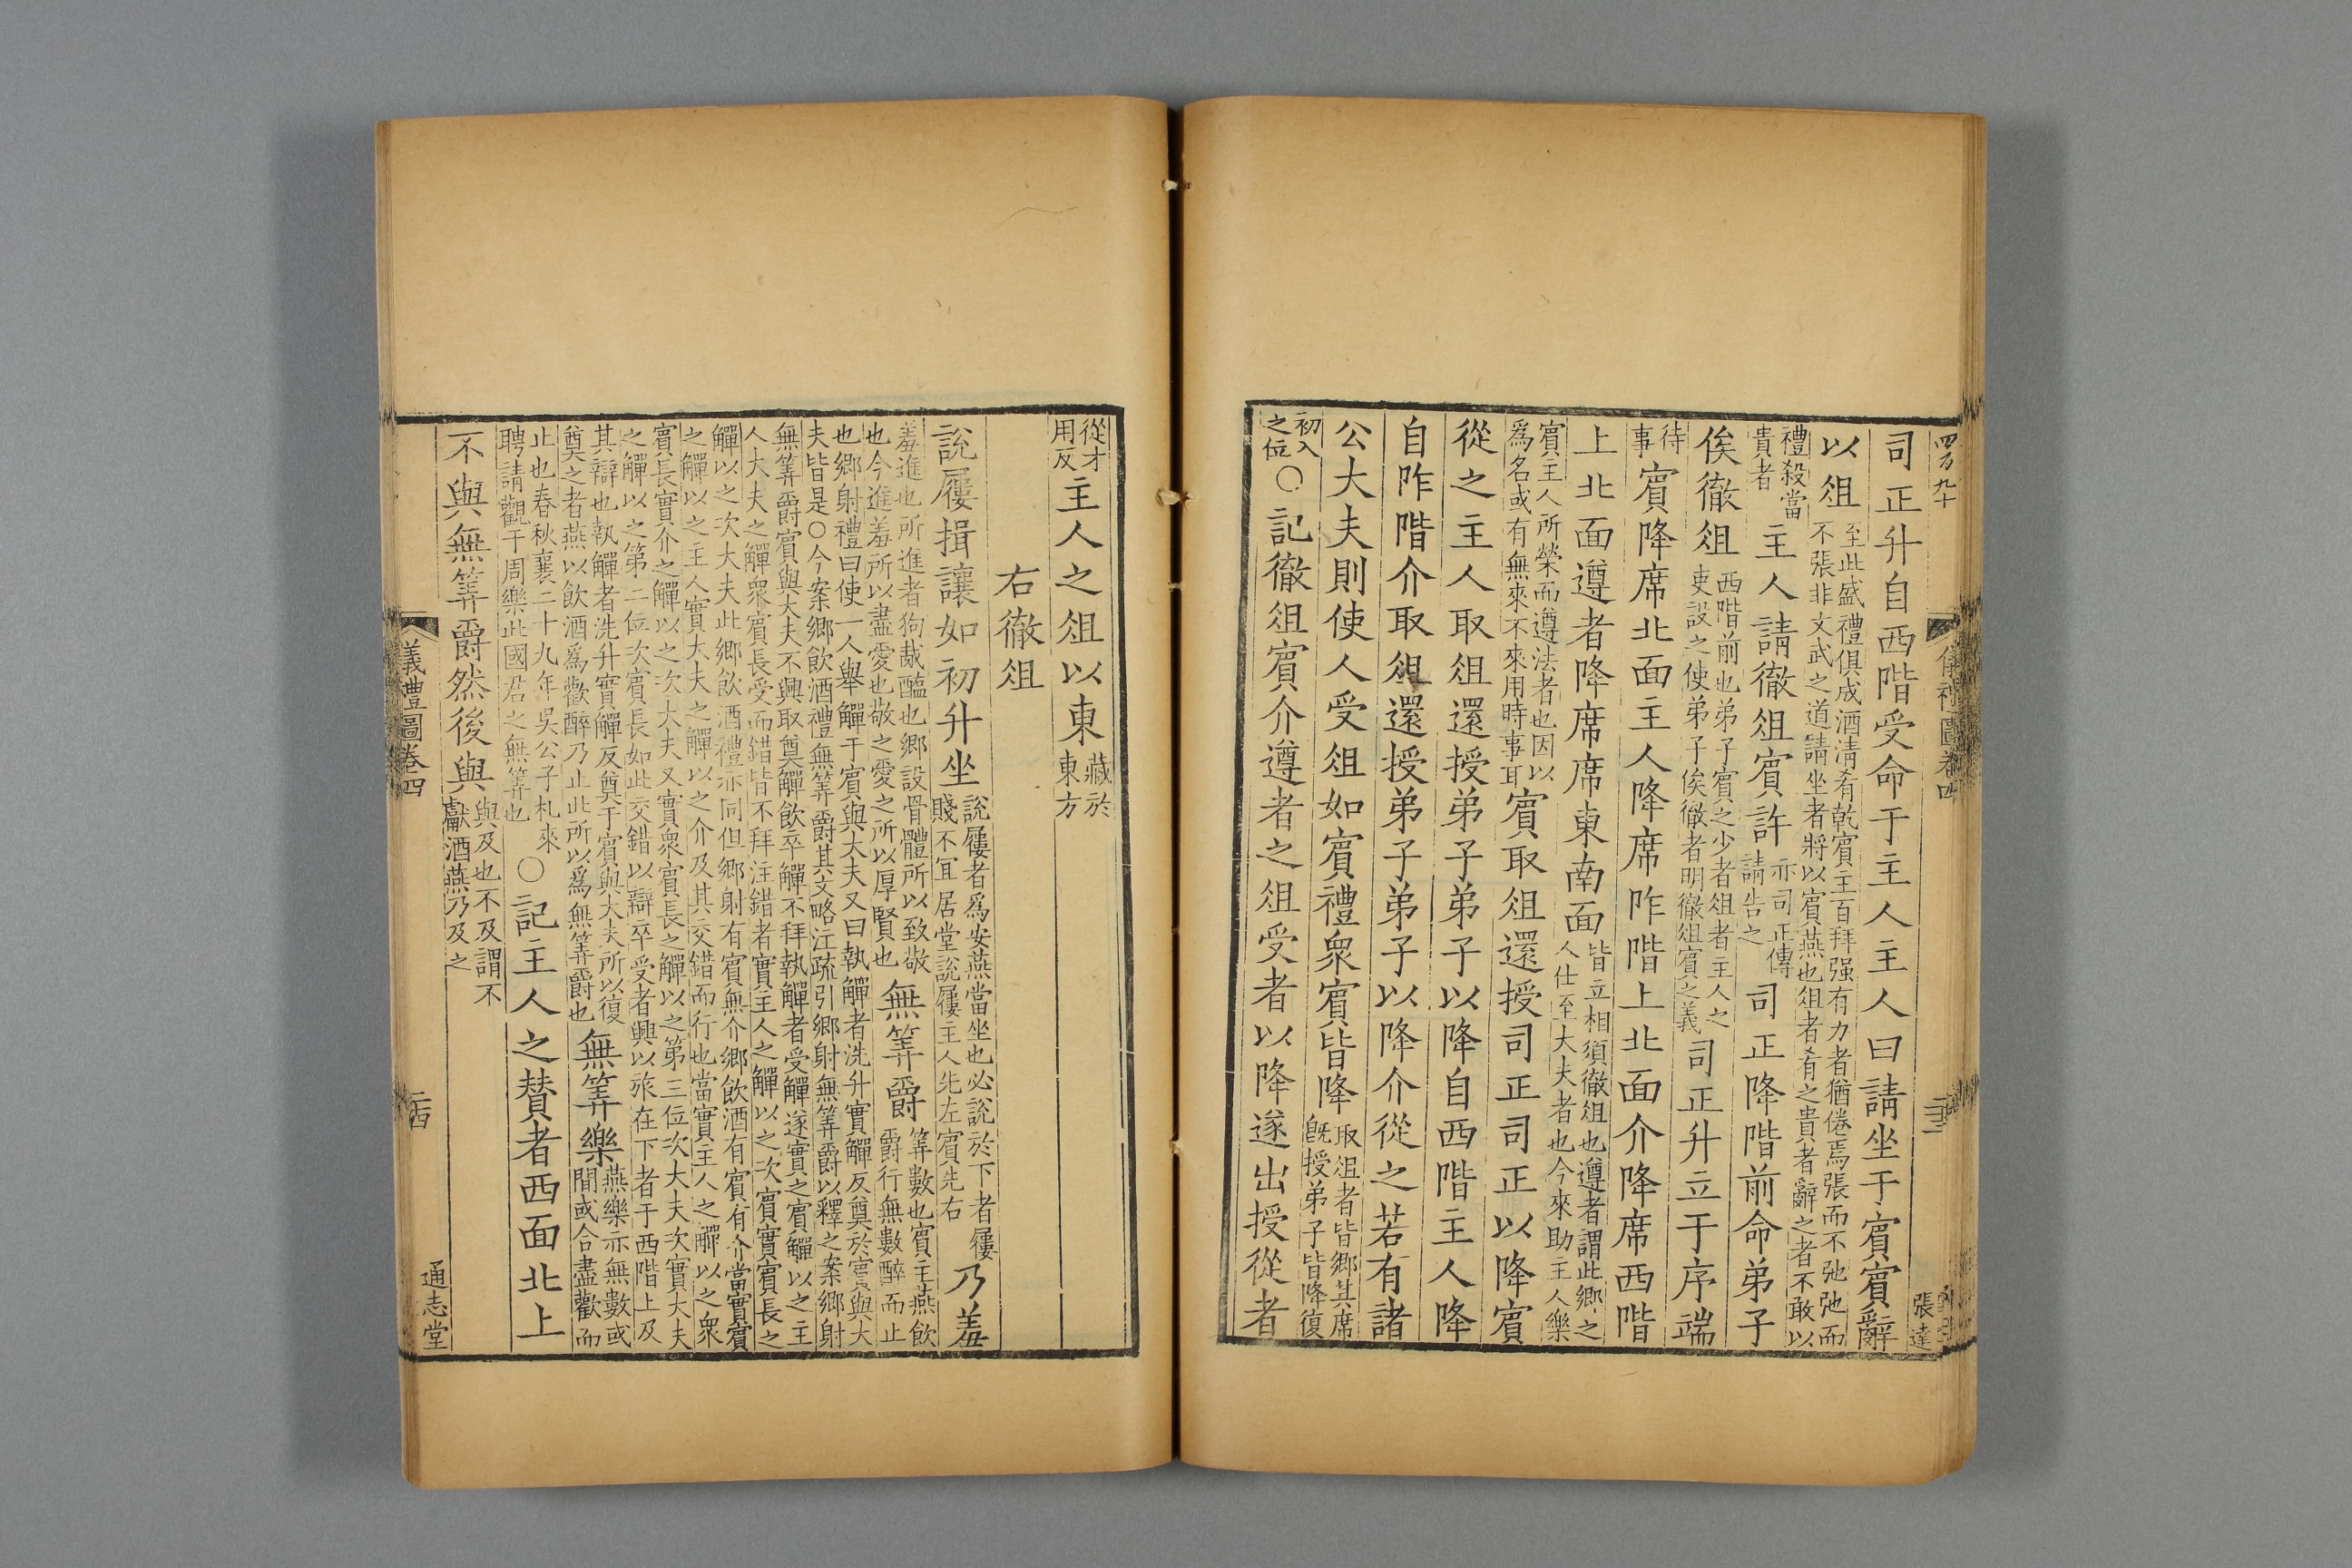 四百九十
儀禮圖卷四
二十三
張達
司正升自西階受命于主人主人曰請坐于賓賓辭
以俎
至此盛禮俱成酒清肴乾賓主百拜强有力者猶倦焉張而不弛弛而
不張非文武之道請坐者將以賓燕也俎者肴之貴者辭之者不敢以
禮殺當
貴者
主人請徹俎賓許
亦司正傳
請告之
司正降階前命弟子
俟徹俎
西階前也弟子賓之少者俎者主人之
吏設之使弟子俟徹者明徹俎賓之義
司正升立于序端
待
事
賓降席北面主人降席阼階上北面介降席西階
上北面遵者降席席東南面
皆立相須徹俎也遵者謂此鄉之
人仕至大夫者也今來助主人樂
賓主人所榮而遵法者也因以
爲名或有無來不來用時事耳
賓取俎還授司正司正以降賓
從之主人取俎還授弟子弟子以降自西階主人降
自阼階介取俎還授弟子弟子以降介從之若有諸
公大夫則使人受俎如賓禮衆賓皆降
取俎者皆鄉其席
既授弟子皆降復
初入
之位
○記徹俎賓介遵者之俎受者以降遂出授從者
從才
用反
主人之俎以東
藏於
東方
右徹俎
說屨揖讓如初升坐
說屨者爲安燕當坐也必說於下者屨
賤不冝居堂說屨主人先左賓先右
乃羞
羞進也所進者狗胾醢也鄉設骨體所以致敬
也今進羞所以盡愛也敬之愛之所以厚賢也
無筭爵
筭數也賓主燕飲
爵行無數醉而止
也鄉射禮曰使二人舉觶于賓與大夫又曰執觶者洗升實觶反奠於賓與大
夫皆是○今案鄉飲酒禮無筭爵其文略注疏引鄉射無筭爵以釋之案鄉射
無筭爵賓與大夫不興取奠觶飲卒觶不拜執觶者受觶遂實之賓觶以之主
人大夫之觶衆賓長受而錯皆不拜注錯者實主人之觶以之次賓實賓長之
觶以之次大夫此鄉飲酒禮亦同但鄉射有賓無介鄉飲酒有賓有介當實賓
之觶以之主人實大夫之觶以之介及其交錯而行也當實主人之觶以之衆
賓長實介之觶以之次大夫又實衆賓長之觶以之第三位次大夫次實大夫
之觶以之第二位次賓長如此交錯以辯卒受者興以旅在下者于西階上及
其辯也執觶者洗升實觶反奠于賓與大夫所以復
奠之者燕以飲酒爲歡醉乃止此所以爲無筭爵也
無筭樂
燕樂亦無數或
間或合盡歡而
止也春秋襄二十九年吳公子札來
聘請觀于周樂此國君之無筭也
○記主人之贊者西面北上
不與無筭爵然後與
與及也不及謂不
獻酒燕乃及之
儀禮圖卷四
二十四
通志堂